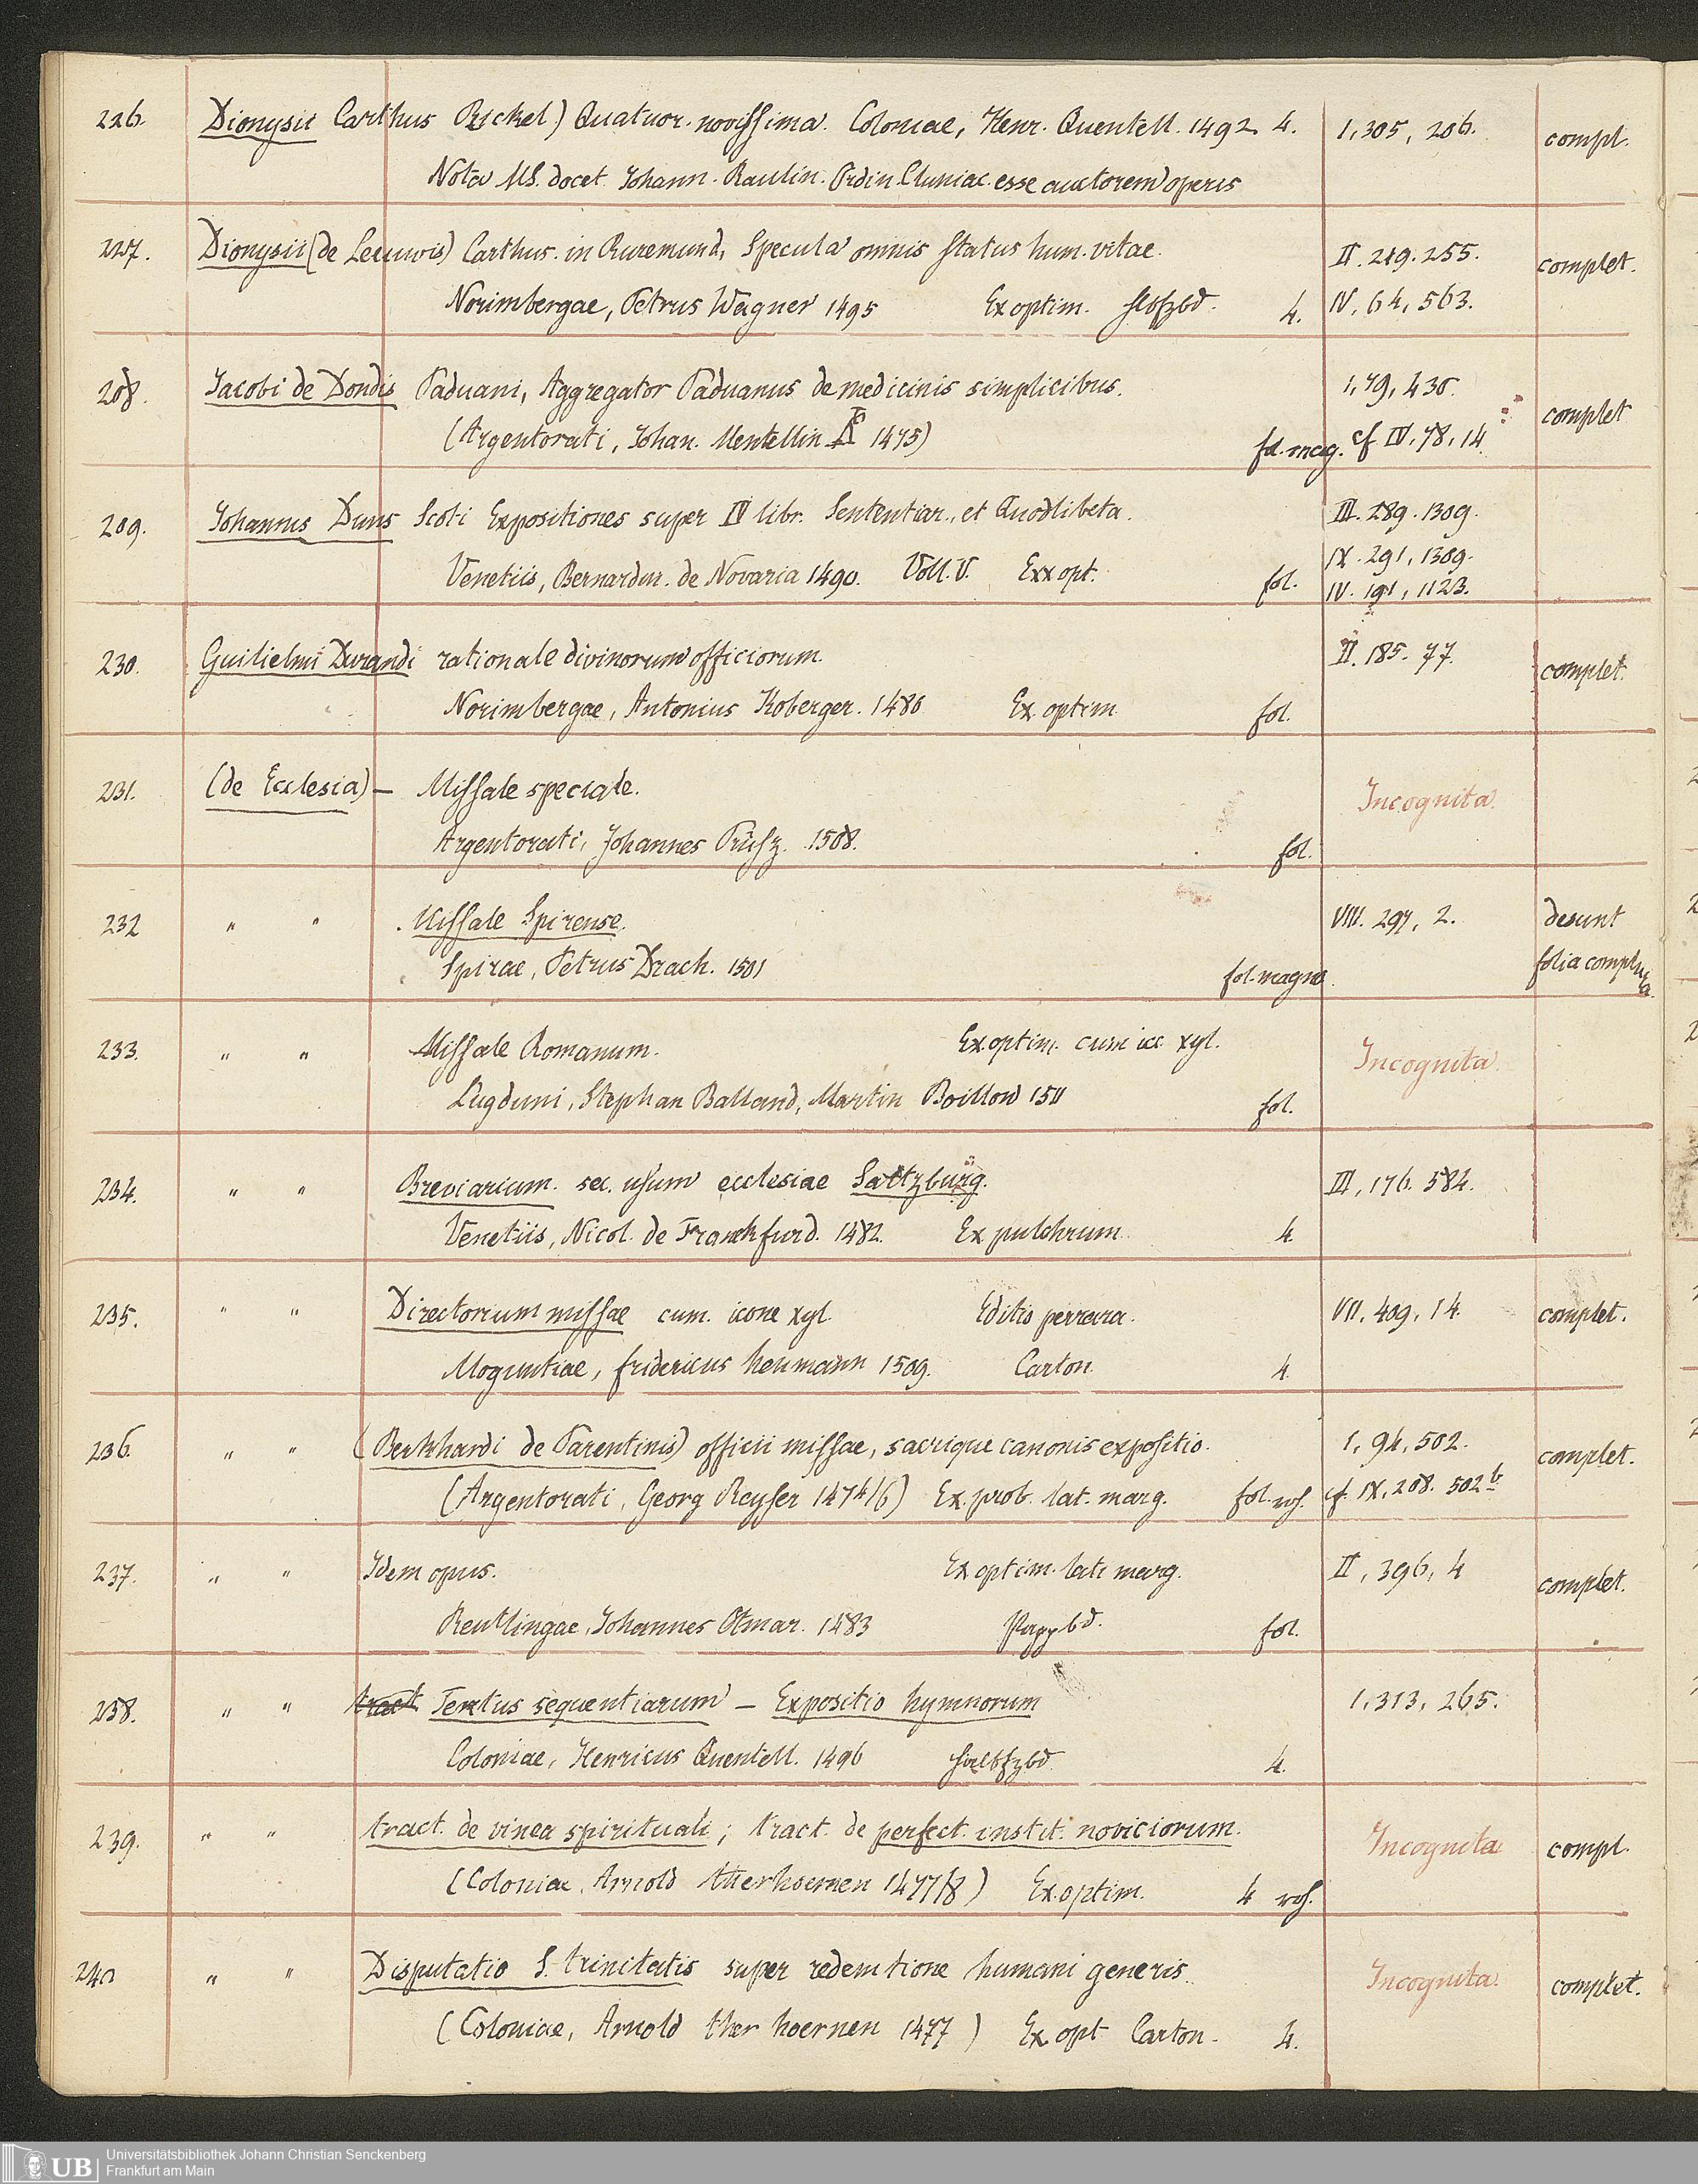 226. Dionysii Carthus Rickel) Quatuor. novissima. Coloniae, Henr. Quentell. 1492. 4. I, 305, 206. compl.
Nota MS. docet Johann. Raulin. Ordin. Cluniac. esse auctorem operis
227. Dionysii (de Leeuwis) Carthus. in Ruremund, Specula omnis status hum. vitae. II. 219. 255. complet.
Norimbergae, Petrus Wagner 1495 Ex optim. Hlbfzbd. 4. IV, 64, 563.
208. Jacobi de Dondis Paduani, Aggregator Paduanus de medicinis simplicibus. I, 79, 430. complet
(Argentorati, Johan. Mentellin 1475) fol. mag. cf IV, 78, 14.
209. Johannis Duns Scoti Expositiones super IV libr. Sententiar., et Quodlibeta. III. 289. 1309.
Venetiis, Bernardin. de Novaria 1490. Voll. V. Exx opt. fol. IX. 291, 1309.
IV. 191, 1123.
230. Guilielmi Durandi rationale divinorum officiorum. II. 185. 77. complet.
Norimbergae, Antonius Koberger. 1480 Ex. optim. fol.
231. (de Ecclesia) — Missale speciale. Incognita.
Argentorati, Johannes Prüsz. 1508. fol.
232 " " Missale Spirense. VIII. 297, 2. desunt
Spirae, Petrus Drach. 1501 fol. magno. folia complura.
233. " " Missale Romanum. Ex. optim. cum icc. xyl. Incognita.
Lugduni, Stephan Balland, Martin Boillow 1511 fol.
234. " " Breviarium. sec. usum ecclesiae Saltzburg. III, 176. 584.
Venetiis, Nicol. de Franckfurd. 1482. Ex pulchrum. 4.
235. " " Directorium missae cum. icone xyl. Editio perrara. VII. 409, 14. complet.
Moguntiae, fridericus heumann 1509. Carton. 4.
236. " " (Berkhardi de Parentinis) officii missae, sacrique canonis expositio. I, 94, 502. complet.
(Argentorati, Georg Reyser 1474/6) Ex. prob. lat. marg. fol. roh. cf. IX, 208. 502b
237. " " Idem opus. Ex optim. lati marg. II, 396, 4 complet.
Reutlingae, Johannes Otmar. 1483 Pappbd. fol.
238. " " tract Textus sequentiarum — Expositio hymnorum I, 313, 265.
Coloniae, Henricus Quentell. 1496 Halbfzbd. 4.
239. " " tract. de vinea spirituali; tract. de perfect. instit. noviciorum. Incognita compl.
(Coloniae, Arnold therhoernen 1477/8) Ex. optim. 4 roh.
240 " " Disputatio S. trinitatis super redemtione humani generis. Incognita. complet.
(Coloniae, Arnold ther hoernen 1477) Ex opt Carton. 4.
UB Universitätsbibliothek Johann Christian Senckenberg
Frankfurt am Main